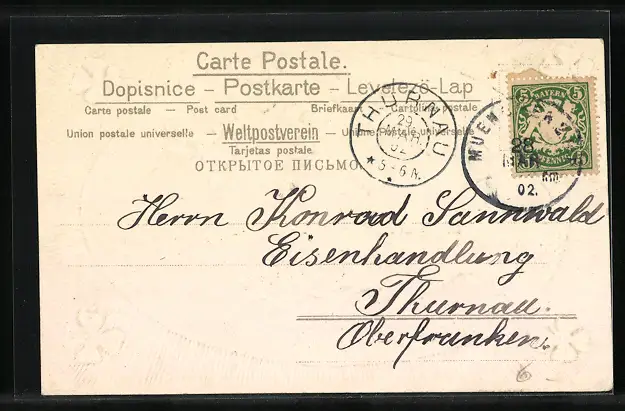 Carte Postale.
Dopisnice – Postkarte – Levelező-Lap
Carte postale – Post card Briefkaart – Cartolina postale
Union postale universelle – Weltpostverein – Unione Postale universelle
Tarjetas postale
ОТКРЫТОЕ ПИСЬМО.
THURNAU
29
MAR.
02
5-6 N.
MUEN
28
MAR
02.
5 BAYERN 5
PFENNIG
Herrn Konrad Sannwald
Eisenhandlung
Thurnau.
Oberfranken.